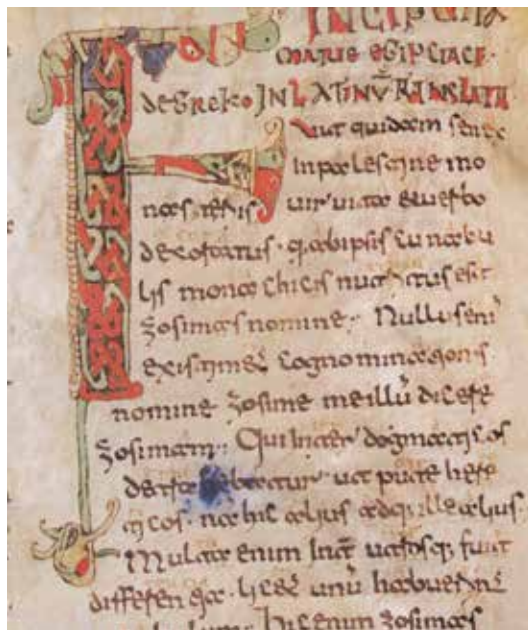 INCIPIT UITA
MARIE EGIPCIACE·
DE GREKO IN LATINŪ TRANSLATA
Fuit quidam senex
in palestine mo
nasteriis uir uitae & uerbo
decoratus· q ab ipsis cunabu
lis monachicis nutritus est
zosimas nomine· Nullus eni
existimet cognominationis
nomine zosime me illū dicere
zosimam· Qui inter dogmaticos
de secta habebatur ut puta here
ticos· nam hic alius
Multa enim int utrosq; fuit
differentia· licet unū habuerint
Hic enim zosimas